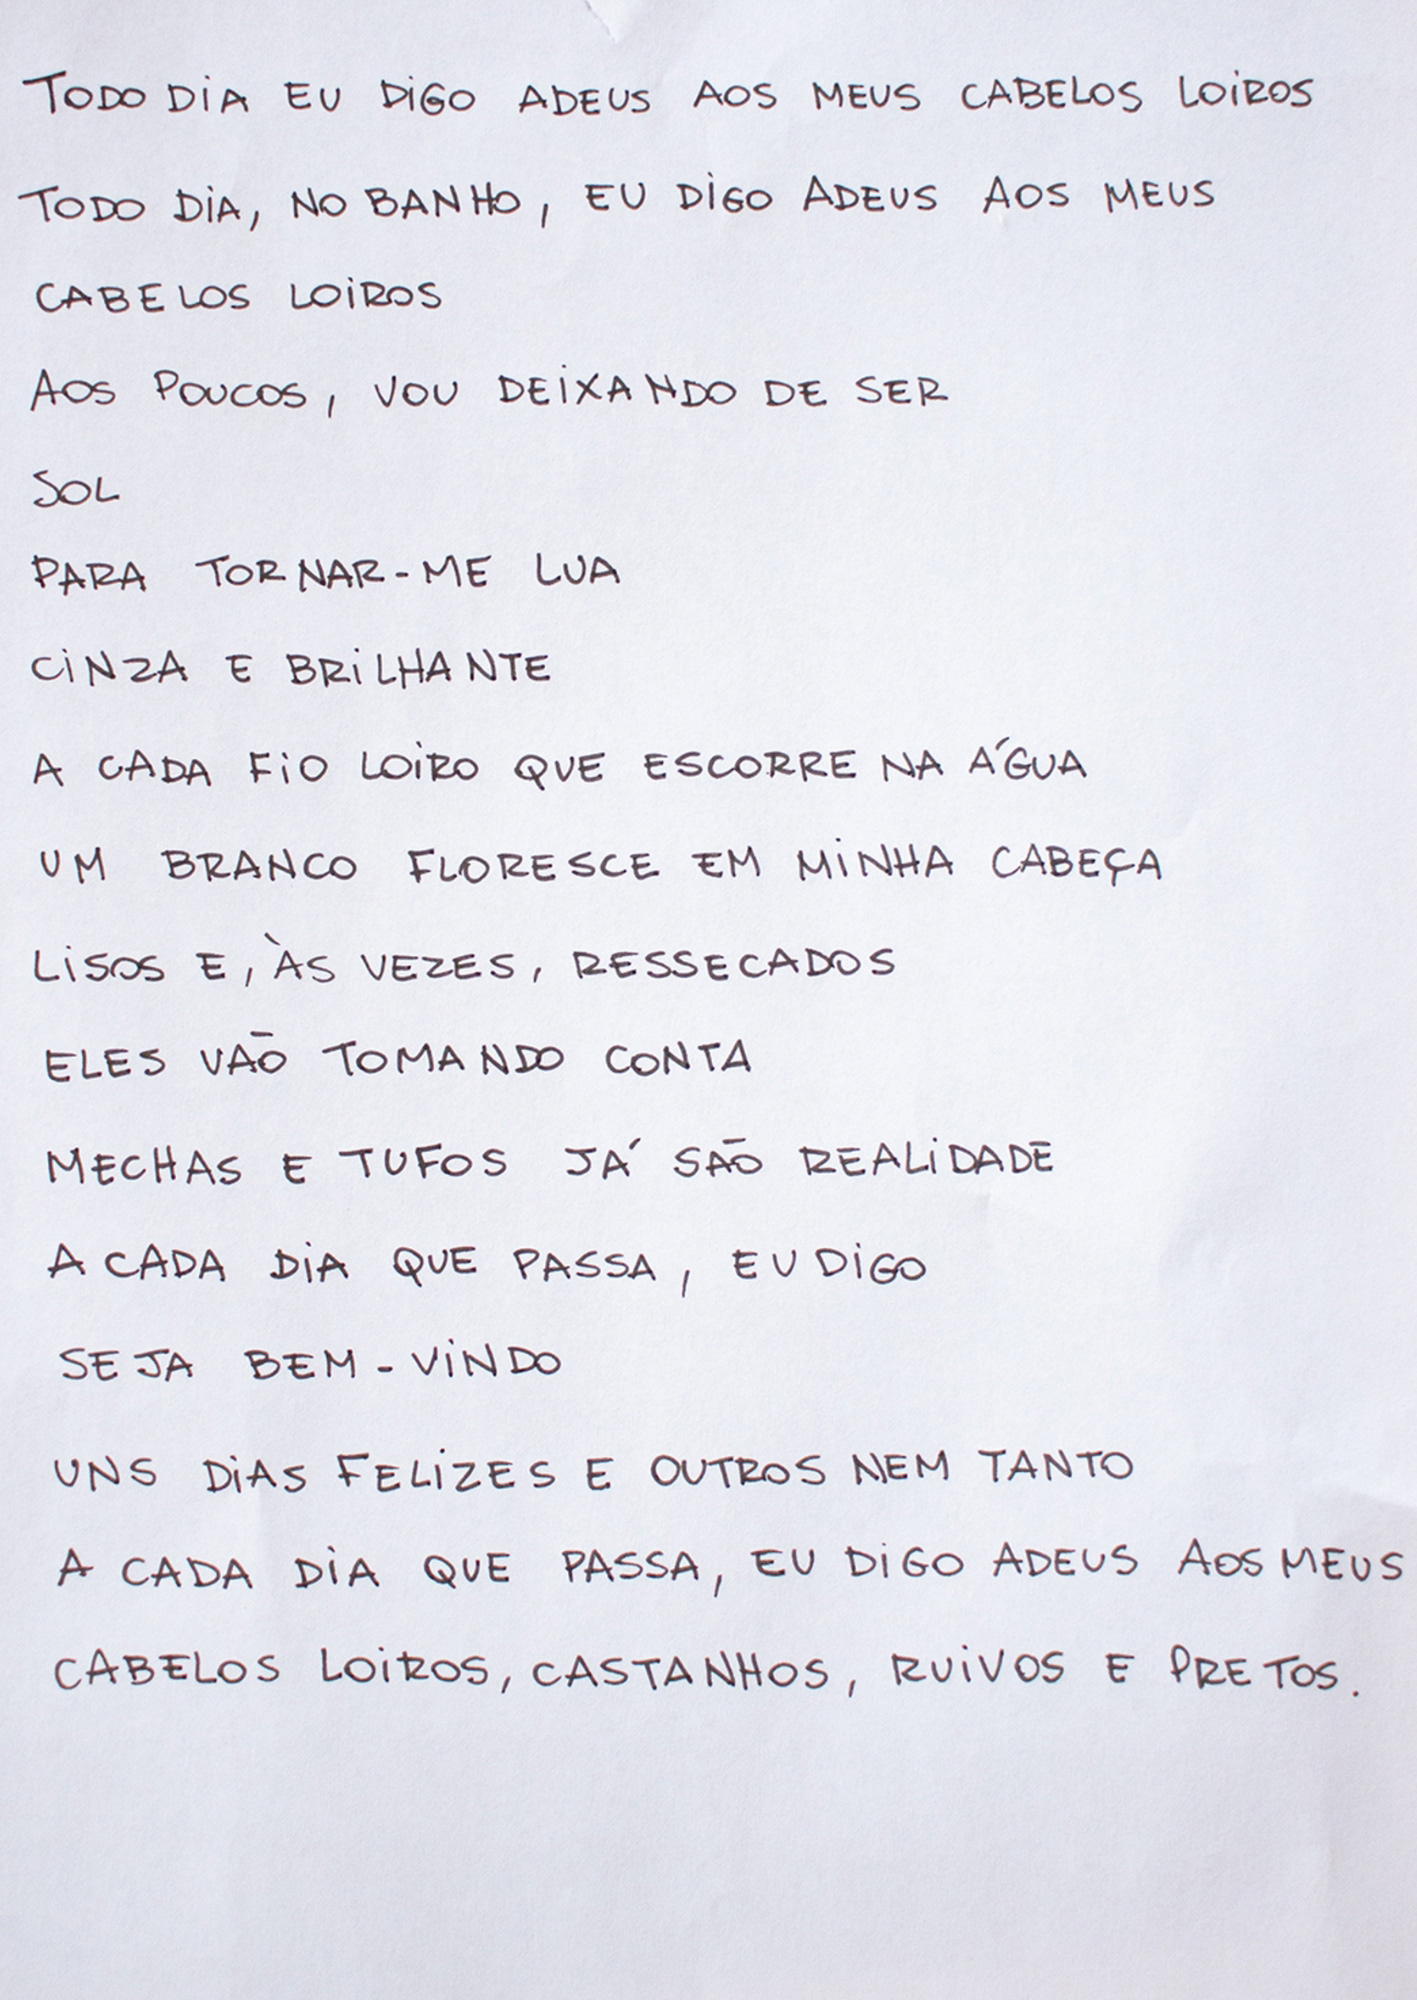 TODO DIA EU DIGO ADEUS AOS MEUS CABELOS LOIROS
TODO DIA, NO BANHO, EU DIGO ADEUS AOS MEUS
CABELOS LOIROS
AOS POUCOS, VOU DEIXANDO DE SER
SOL
PARA TORNAR-ME LUA
CINZA E BRILHANTE
A CADA FIO LOIRO QUE ESCORRE NA ÁGUA
UM BRANCO FLORESCE EM MINHA CABEÇA
LISOS E, ÀS VEZES, RESSECADOS
ELES VÃO TOMANDO CONTA
MECHAS E TUFOS JÁ SÃO REALIDADE
A CADA DIA QUE PASSA, EU DIGO
SEJA BEM-VINDO
UNS DIAS FELIZES E OUTROS NEM TANTO
A CADA DIA QUE PASSA, EU DIGO ADEUS AOS MEUS
CABELOS LOIROS, CASTANHOS, RUIVOS E PRETOS.